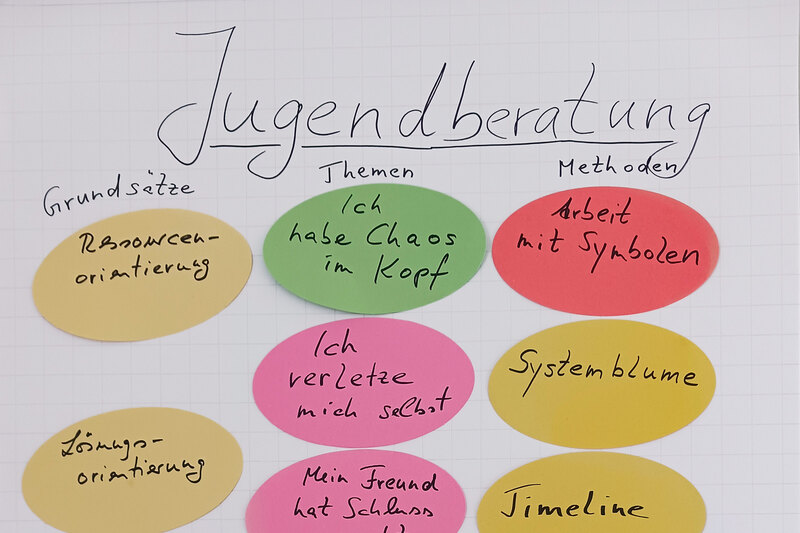 Jugendberatung
Grundsätze
Ressourcen-
orientierung
Lösungs-
orientierung
Themen
Ich
habe Chaos
im Kopf
Ich
verletze
mich selbst
Mein Freund
hat Schluss
Methoden
Arbeit
mit Symbolen
Systemblume
Timeline